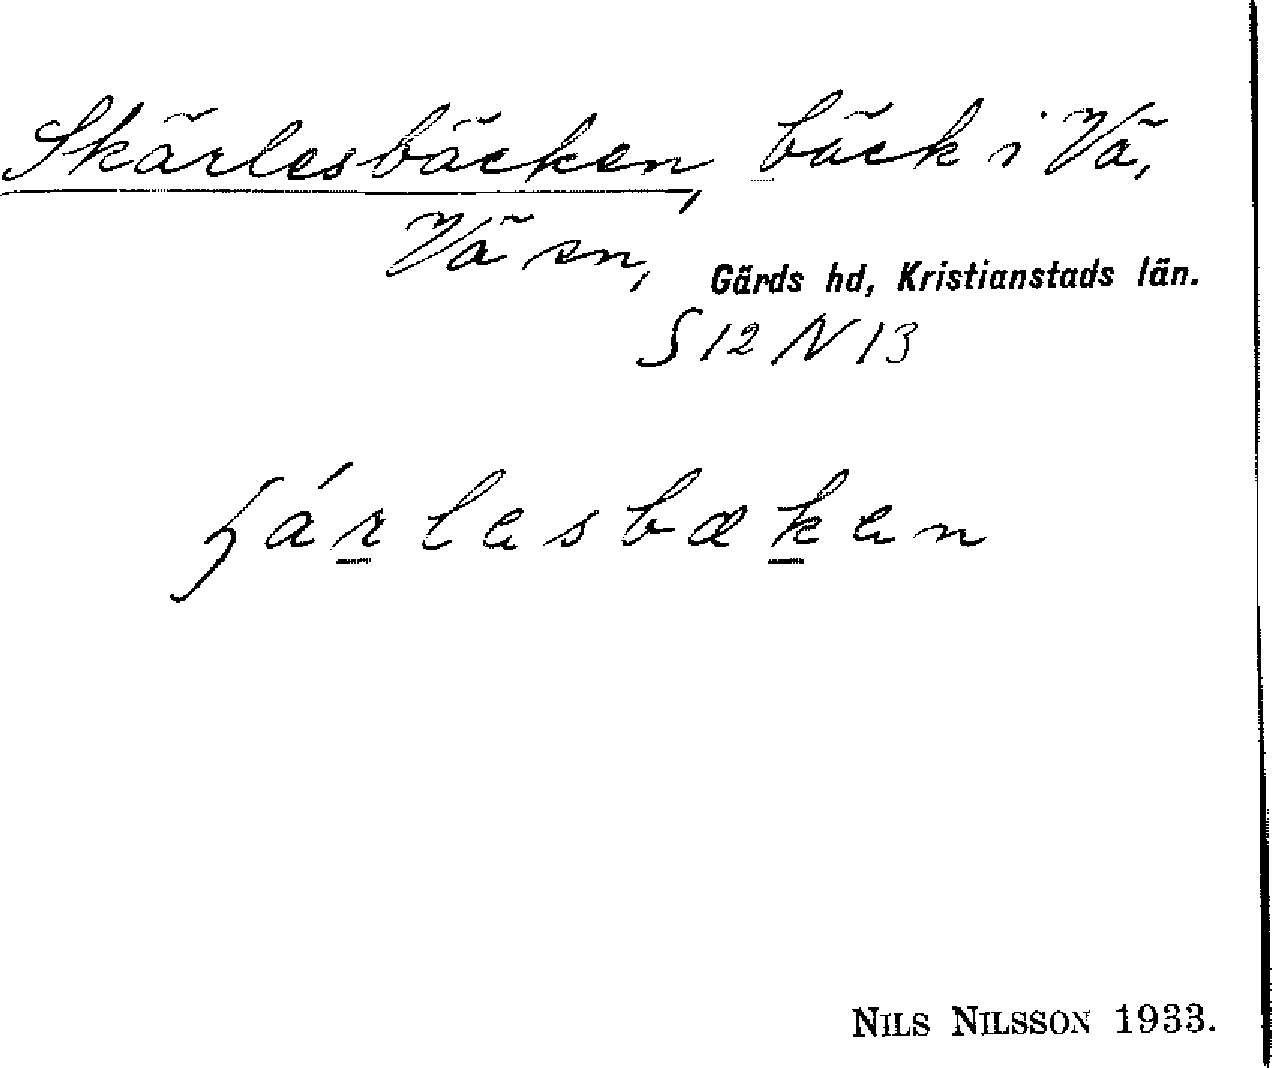 Skärlesbäcken, bäck i Vä,
Vä sn, Gärds hd, Kristianstads län.
S 12 N 13
ʃárlesbæken
NILS NILSSON 1933.